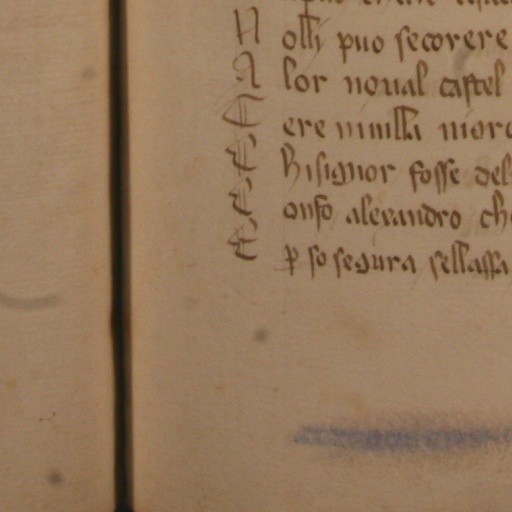 N olli puo secorere
A lor noual castel
E ere
E hi signor fosse del
E onfo alexandro ch
E p so segura sellassa